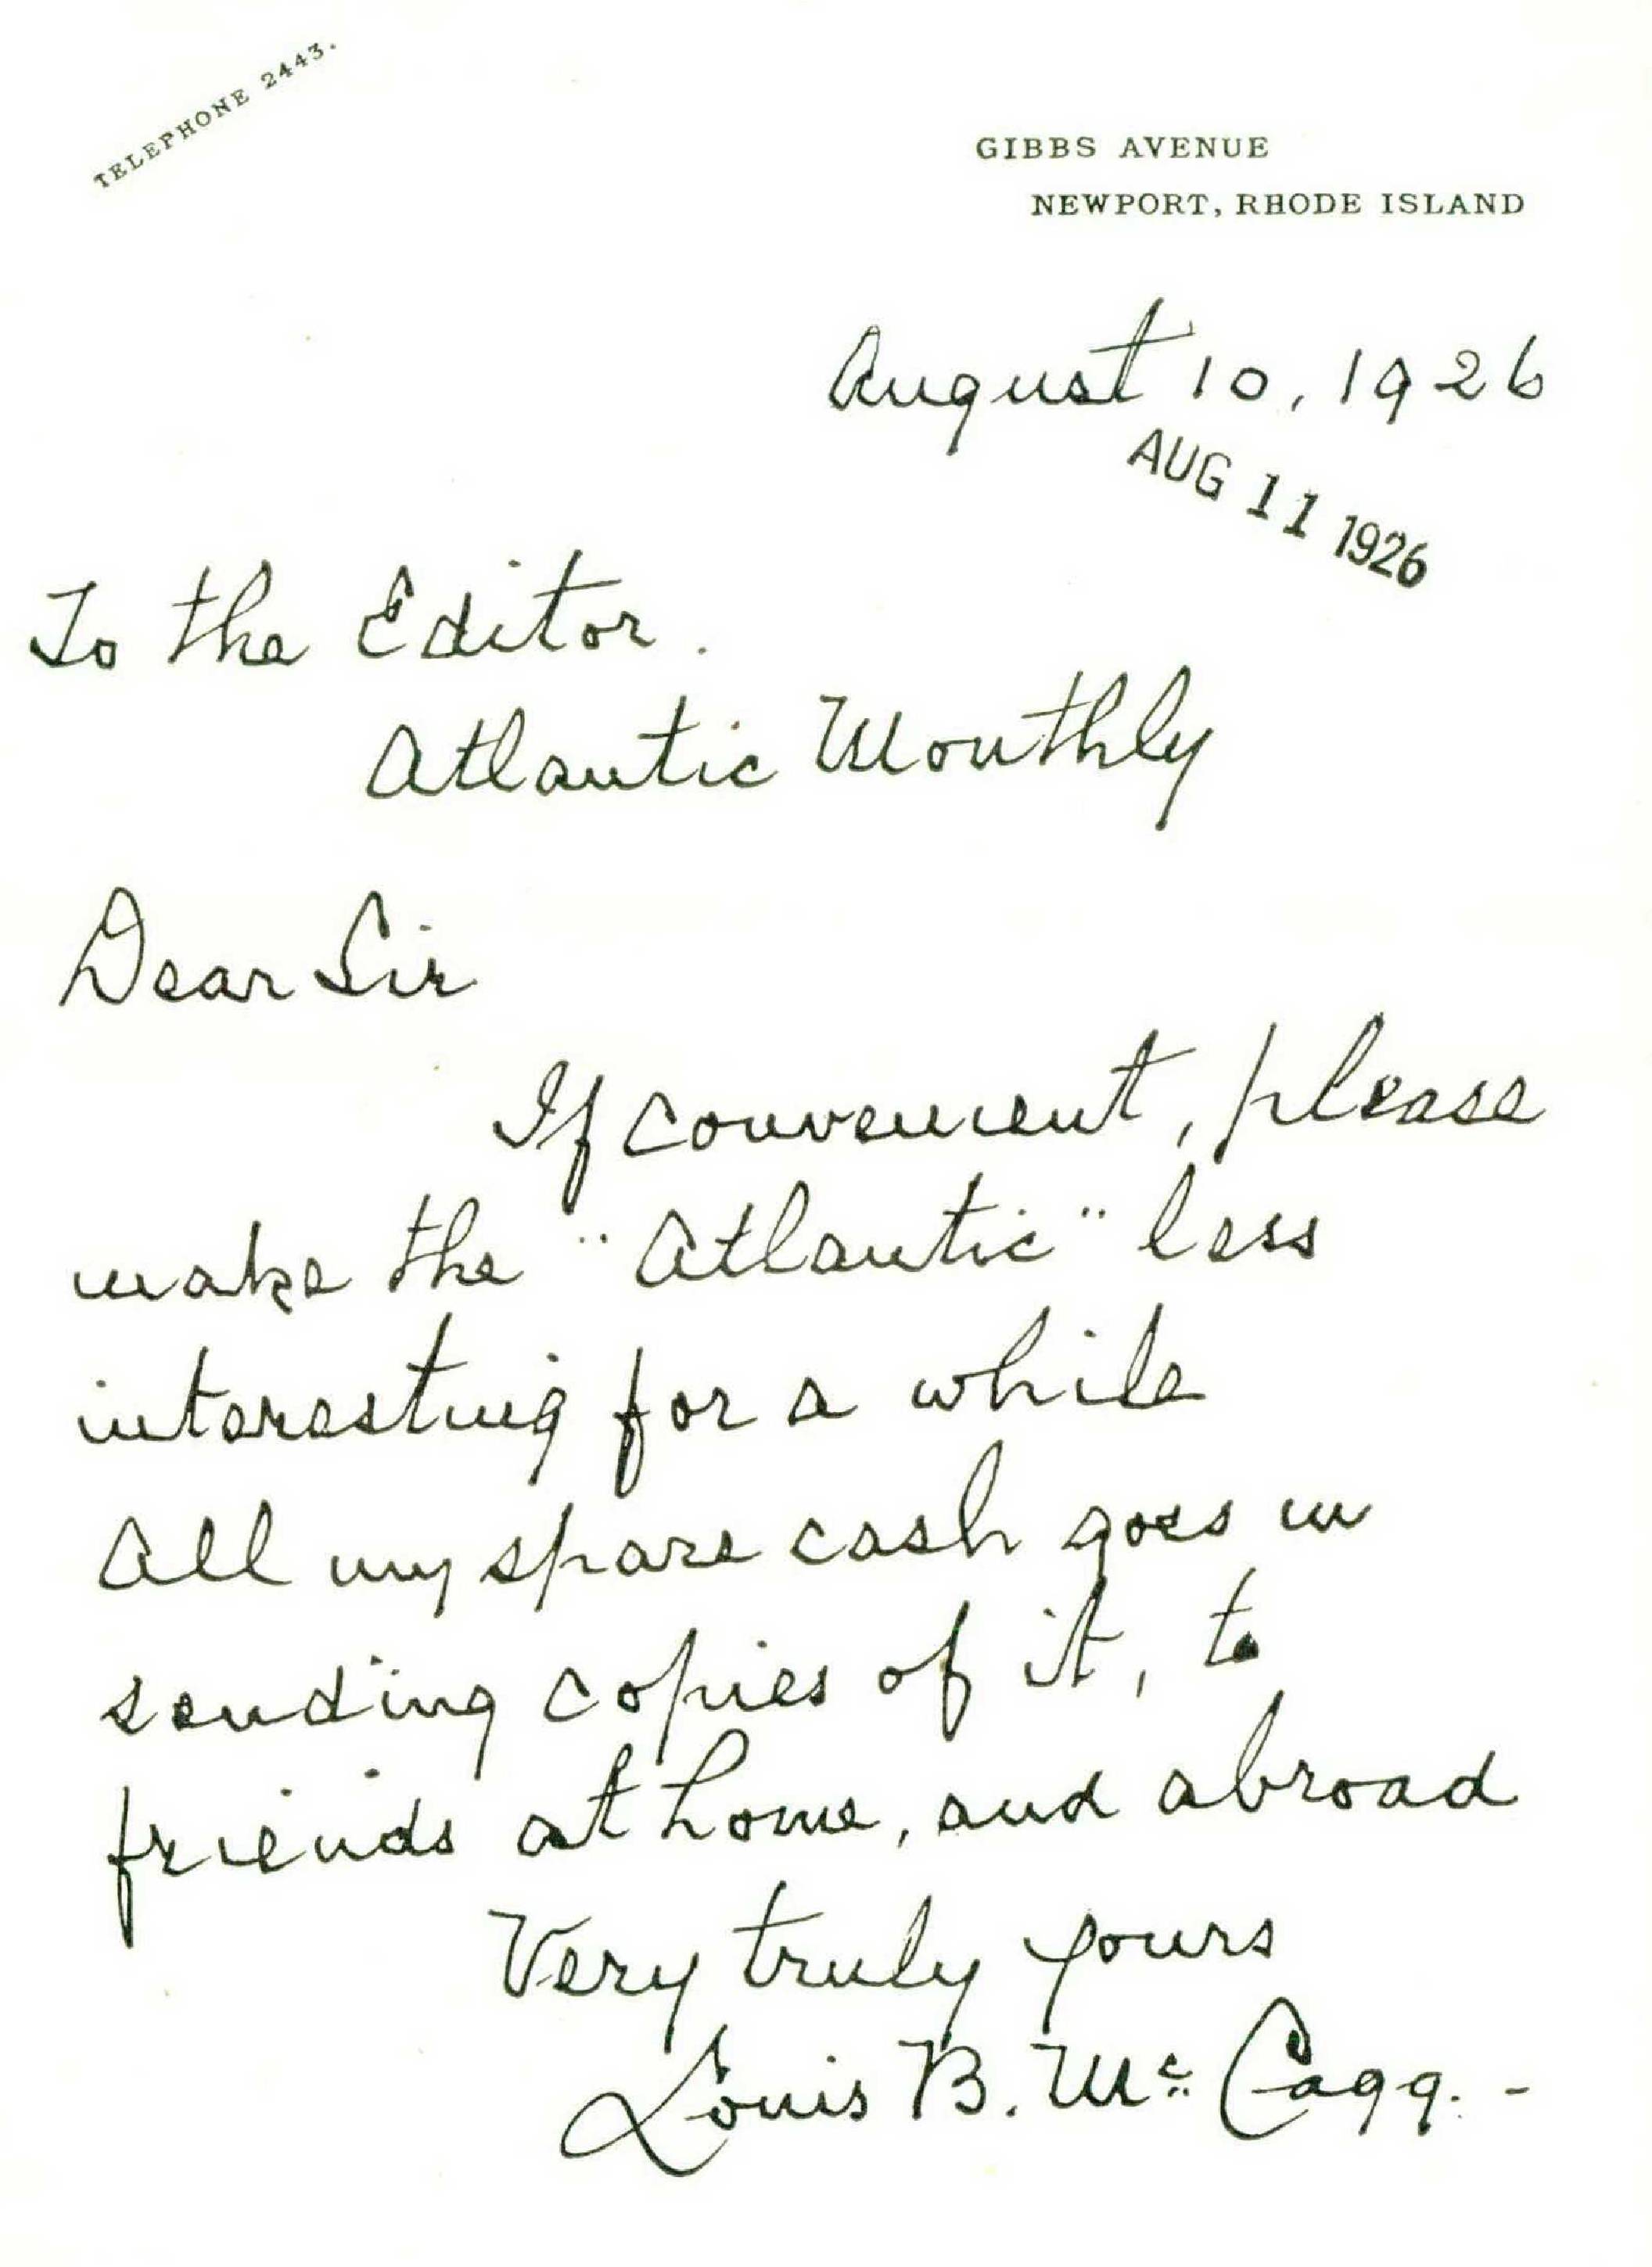 TELEPHONE 2443.
GIBBS AVENUE
NEWPORT, RHODE ISLAND
August 10, 1926
AUG 11 1926
To the Editor.
Atlantic Monthly
Dear Sir
If convenient, please
make the "Atlantic" less
interesting for a while
All my spare cash goes in
sending copies of it, to
friends at home, and abroad
Very truly yours
Louis B. Mc Cagg. -